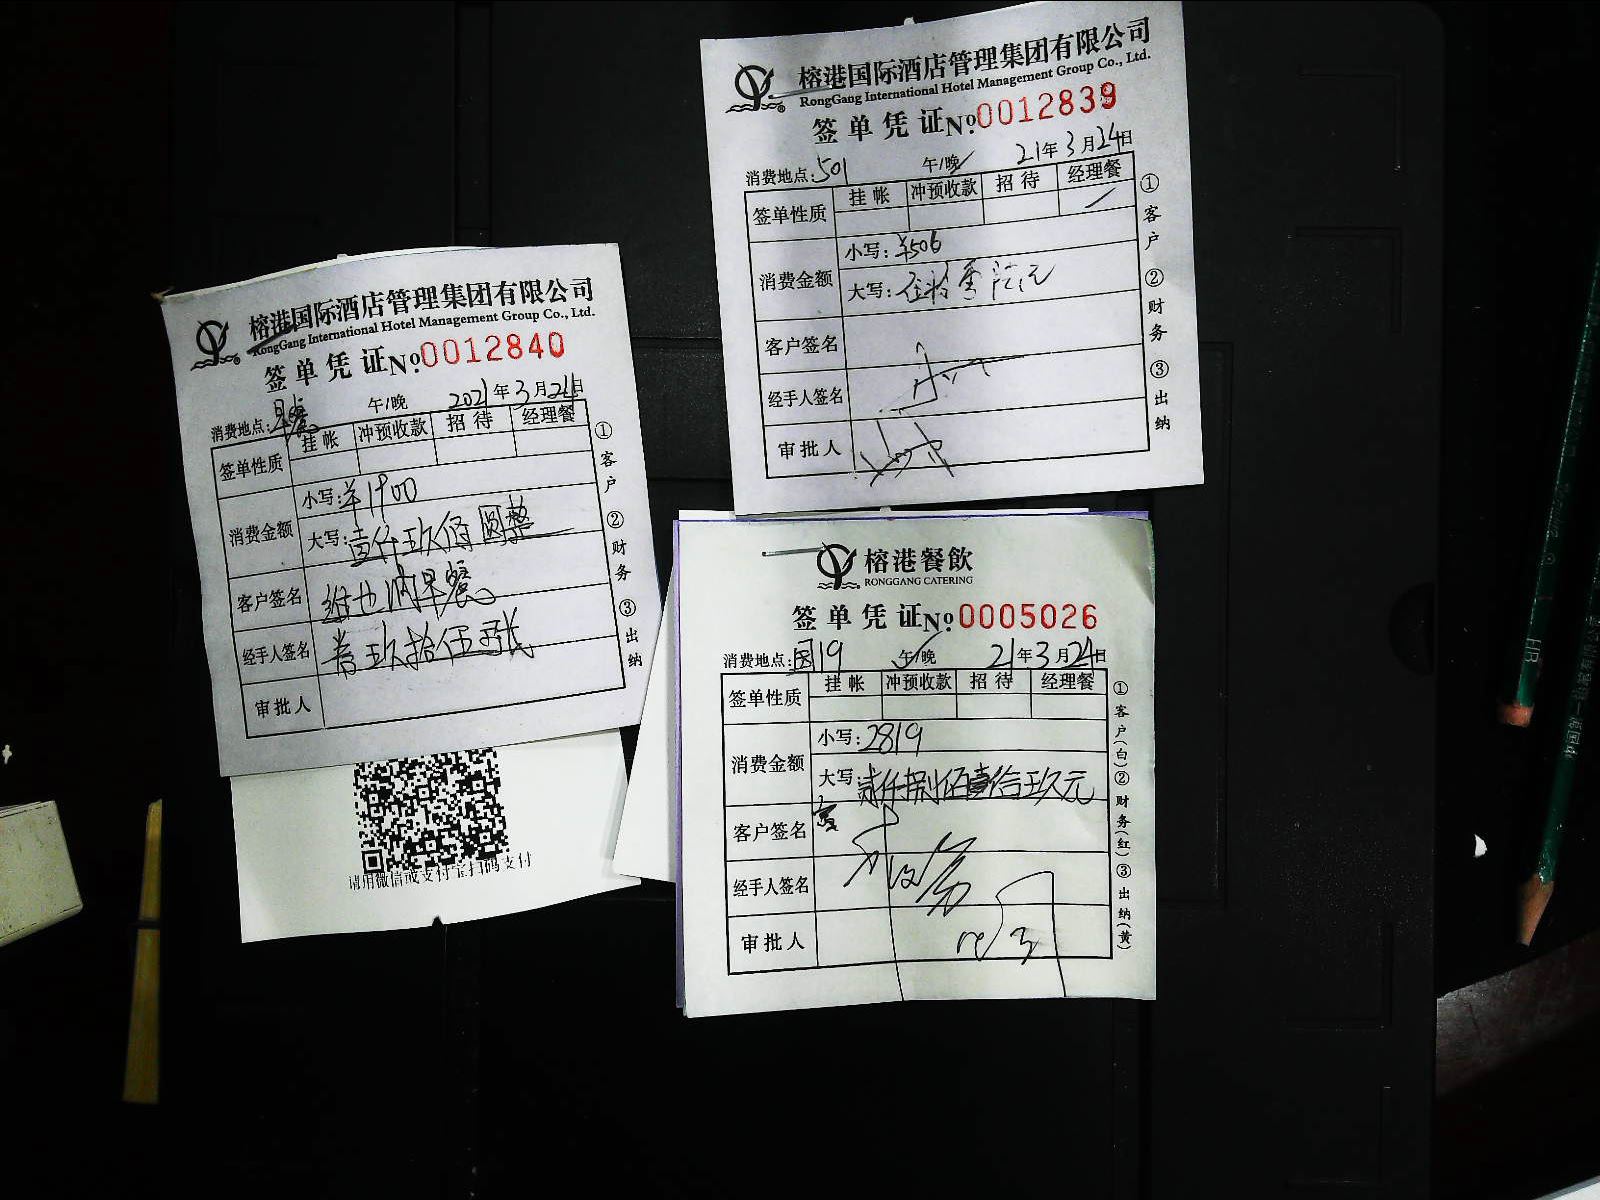 榕港国际酒店管理集团有限公司
RongGang International Hotel Management Group Co., Ltd.
签单凭证 No 0012839
消费地点:501 午/晚 21年3月24日
签单性质 挂帐 冲预收款 招待 经理餐
消费金额 小写:¥506
大写:伍拾零陆元
客户签名
经手人签名
审批人
①客户 ②财务 ③出纳
榕港国际酒店管理集团有限公司
RongGang International Hotel Management Group Co., Ltd.
签单凭证 No 0012840
消费地点:早餐 午/晚 2021年3月24日
签单性质 挂帐 冲预收款 招待 经理餐
消费金额 小写:¥1900
大写:壹仟玖佰圆整
客户签名 维也纳早餐
经手人签名 玖拾伍张
审批人
①客户 ②财务 ③出纳
请用微信或支付宝扫码支付
榕港餐飲
RONGGANG CATERING
签单凭证 No 0005026
消费地点:国19 午/晚 21年3月24日
签单性质 挂帐 冲预收款 招待 经理餐
消费金额 小写:2819
大写 贰仟捌佰壹拾玖元
客户签名
经手人签名
审批人
①客户(白)②财务(红)③出纳(黄)
HB